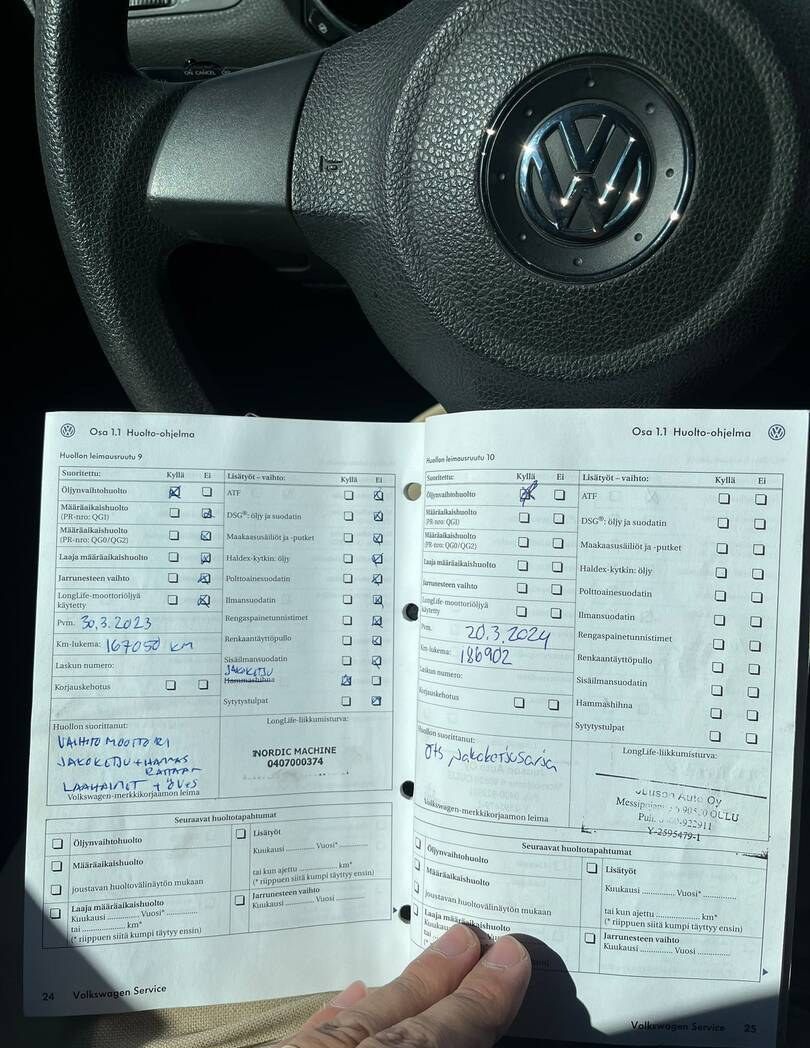 ON CANCEL
Osa 1.1 Huolto-ohjelma
Huollon leimausruutu 9
Suoritettu: Kyllä Ei
Öljynvaihtohuolto
Määräaikaishuolto
(PR-nro: QGI)
Määräaikaishuolto
(PR-nro: QG0/QG2)
Laaja määräaikaishuolto
Jarrunesteen vaihto
LongLife-moottoriöljyä
käytetty
Pvm. 30.3.2023
Km-lukema: 167050 KM
Laskun numero:
Korjauskehotus
Lisätyöt – vaihto: Kyllä Ei
ATF
DSG®: öljy ja suodatin
Maakaasusäiliöt ja -putket
Haldex-kytkin: öljy
Polttoainesuodatin
Ilmansuodatin
Rengaspainetunnistimet
Renkaantäyttöpullo
Sisäilmansuodatin
JAKOKETJU
Hammashihna
Sytytystulpat
Huollon suorittanut:
VAIHTO MOOTTORI
JAKOKETJU + HAMMAS
RATTAAT
LAAHAIMET +
Volkswagen-merkkikorjaamon leima
LongLife-liikkumisturva:
NORDIC MACHINE
0407000374
Seuraavat huoltotapahtumat
Öljynvaihtohuolto
Määräaikaishuolto
joustavan huoltovälinäytön mukaan
Laaja määräaikaishuolto
Kuukausi ............ Vuosi* ............
tai ............ km*
(* riippuen siitä kumpi täyttyy ensin)
Lisätyöt
Kuukausi ............ Vuosi* ............
tai kun ajettu ............ km*
(* riippuen siitä kumpi täyttyy ensin)
Jarrunesteen vaihto
Kuukausi ............ Vuosi ............
24 Volkswagen Service
Osa 1.1 Huolto-ohjelma
Huollon leimausruutu 10
Suoritettu: Kyllä Ei
Öljynvaihtohuolto
Määräaikaishuolto
(PR-nro: QGI)
Määräaikaishuolto
(PR-nro: QG0/QG2)
Laaja määräaikaishuolto
Jarrunesteen vaihto
LongLife-moottoriöljyä
käytetty
Pvm. 20.3.2024
Km-lukema: 186902
Laskun numero:
Korjauskehotus
Lisätyöt – vaihto: Kyllä Ei
ATF
DSG®: öljy ja suodatin
Maakaasusäiliöt ja -putket
Haldex-kytkin: öljy
Polttoainesuodatin
Ilmansuodatin
Rengaspainetunnistimet
Renkaantäyttöpullo
Sisäilmansuodatin
Hammashihna
Sytytystulpat
Huollon suorittanut:
Jakoketjusarja
Volkswagen-merkkikorjaamon leima
LongLife-liikkumisturva:
Auto Oy
OULU
Y-2595479-1
Seuraavat huoltotapahtumat
Öljynvaihtohuolto
Määräaikaishuolto
joustavan huoltovälinäytön mukaan
Laaja määräaikaishuolto
tai
(*
Lisätyöt
Kuukausi ............ Vuosi* ............
tai kun ajettu ............ km*
(* riippuen siitä kumpi täyttyy ensin)
Jarrunesteen vaihto
Kuukausi ............ Vuosi ............
Volkswagen Service 25